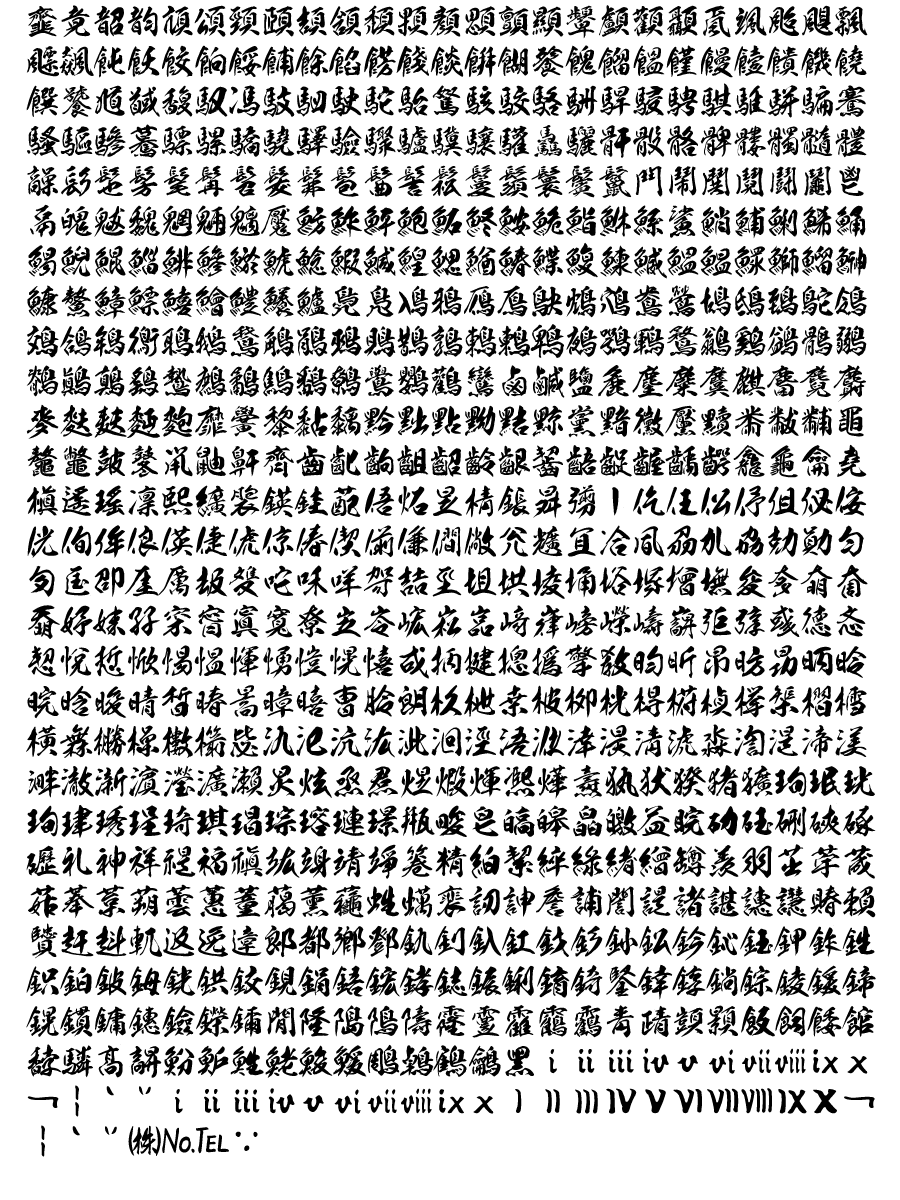 韲竟韶韵頏頌頸頤頡頷頽顆顏顋顫顯顰顱顴顳颪颯颱颶飄
飃飆飩飫餃餉餒餔餘餡餝餞餤餠餬餮餽餾饂饉饅饐饋饑饒
饌饕馗馘馥馭馮馼駟駛駝駘駑駭駮駱駲駻駸騁騏騅駢騙騫
騷驅驂驀驃騾驕驍驛驗驟驢驥驤驩驫驪骭骰骼髀髏髑髓體
髞髟髢髣髦髯髫髮髴髱髷髻鬆鬘鬚鬟鬢鬣鬥鬧鬨鬩鬪鬮鬯
鬲魄魃魏魍魎魑魘魴鮓鮃鮑鮖鮗鮟鮠鮨鮴鯀鯊鮹鯆鯏鯑鯒
鯣鯢鯤鯔鯡鰺鯲鯱鯰鰕鰔鰉鰓鰌鰆鰈鰒鰊鰄鰮鰛鰥鰤鰡鰰
鱇鰲鱆鰾鱚鱠鱧鱶鱸鳧鳬鳰鴉鴈鳫鴃鴆鴪鴦鶯鴣鴟鵄鴕鴒
鵁鴿鴾鵆鵈鵝鵞鵤鵑鵐鵙鵲鶉鶇鶫鵯鵺鶚鶤鶩鶲鷄鷁鶻鶸
鶺鷆鷏鷂鷙鷓鷸鷦鷭鷯鷽鸚鸛鸞鹵鹹鹽麁麈麋麌麒麕麑麝
麥麩麸麪麭靡黌黎黏黐黔黜點黝黠黥黨黯黴黶黷黹黻黼黽
鼇鼈皷鼕鼡鼬鼾齊齒齔齣齟齠齡齦齧齬齪齷齲齶龕龜龠堯
槇遙瑤凜熙纊褜鍈銈蓜俉炻昱棈鋹曻彅丨仡仼伀伃伹佖侒
侊侚侔俍偀倢俿倞偆偰偂傔僴僘兊兤冝冾凬刕劜劦勀勛匀
匇匤卲厓厲叝﨎咜咊咩哿喆坙坥垬埈埇﨏塚增墲夋奓奛奝
奣妤妹孖寀甯寘寬尞岦岺峵崧嵓﨑嵂嵭嶸嶹巐弡弴彧德忞
恝悅悊惞惕愠惲愑愷愰憘戓抦揵摠撝擎敎昀昕昻昉昮昞昤
晥晗晙晴晳暙暠暲暿曺朎朗杦枻桒柀栁桄棏﨓楨﨔榘槢樰
橫橆橳橾櫢櫤毖氿汜沆汯泚洄涇浯涖涬淏淸淲淼渹湜渧渼
溿澈澵濵瀅瀇瀨炅炫焏焄煜煆煇凞燁燾犱犾猤猪獷玽珉珖
珣珒琇珵琦琪琩琮瑢璉璟甁畯皂皜皞皛皦益睆劯砡硎硤硺
礰礼神祥禔福禛竑竧靖竫箞精絈絜綷綠緖繒罇羡羽茁荢荿
菇菶葈蒴蕓蕙蕫﨟薰蘒﨡蠇裵訒訷詹誧誾諟諸諶譓譿賰賴
贒赶﨣軏﨤逸遧郞都鄕鄧釚釗釞釭釮釤釥鈆鈐鈊鈺鉀鈼鉎
鉙鉑鈹鉧銧鉷鉸鋧鋗鋙鋐﨧鋕鋠鋓錥錡鋻﨨錞鋿錝錂鍰鍗
鎤鏆鏞鏸鐱鑅鑈閒隆﨩隝隯霳霻靃靍靏靑靕顗顥飯飼餧館
馞驎髙髜魵魲鮏鮱鮻鰀鵰鵫鶴鸙黑ⅰⅱⅲⅳⅴⅵⅶⅷⅸⅹ
¬￤＇＂ⅰⅱⅲⅳⅴⅵⅶⅷⅸⅹⅠⅡⅢⅣⅤⅥⅦⅧⅨⅩ¬
￤＇＂㈱№℡∵